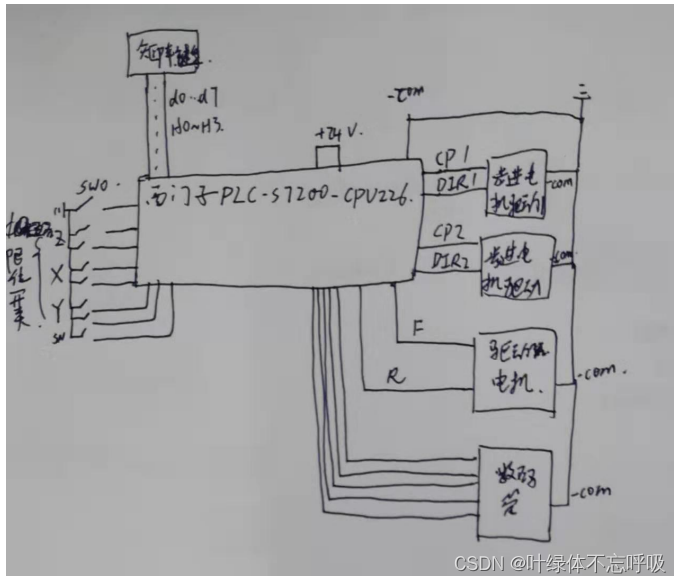 矩阵键盘
d0..d7
H0~H3.
+24V.
-com
西门子PLC-S7200-CPU226.
SW0.
Z
X
Y
SW
限位开关
CP1
DIR1
步进电机驱动1
-com
CP2
DIR2
步进电机驱动
-com
F
R
驱动
电机.
-com.
数码管
-com
CSDN @叶绿体不忘呼吸